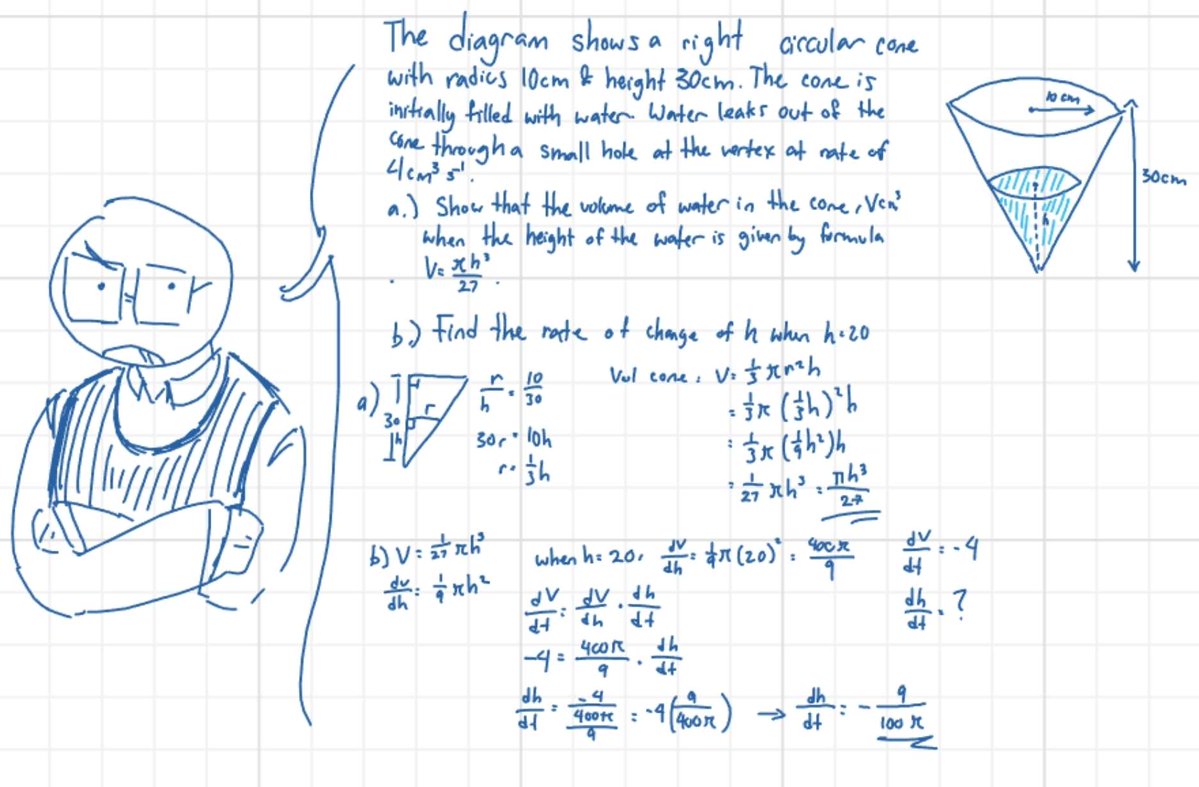 The diagram shows a right circular cone
with radius 10cm & height 30cm. The cone is
initially filled with water. Water leaks out of the
cone through a small hole at the vertex at rate of
4cm³ s⁻¹.
a.) Show that the volume of water in the cone, Vcm³
when the height of the water is given by formula
V= πh³/27.
10cm
30cm
h
b.) Find the rate of change of h when h=20
a)
30
h
r
r/h = 10/30
30r = 10h
r = 1/3h
Vol cone: V= 1/3πr²h
= 1/3π (1/3h)²h
= 1/3π (1/9h²)h
= 1/27 πh³ = πh³/27
b) V = 1/27 πh³
dv/dh = 1/9 πh²
when h= 20, dV/dh = 1/9π(20)² = 400π/9
dV/dt = dV/dh · dh/dt
-4 = 400π/9 · dh/dt
dh/dt = -4/(400π/9) = -4(9/400π) → dh/dt = - 9/100π
dV/dt = -4
dh/dt = ?